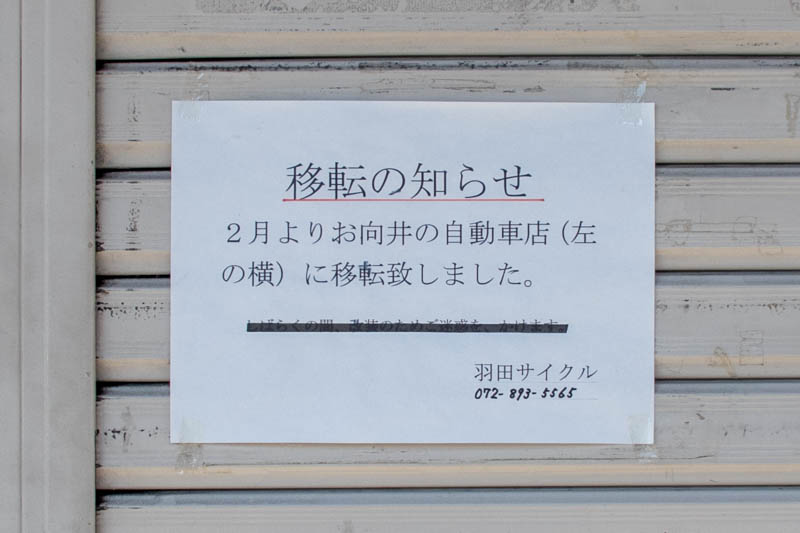 移転の知らせ
２月よりお向井の自動車店（左
の横）に移転致しました。
しばらくの間、改装のためご迷惑を、かけます。
羽田サイクル
072-893-5565